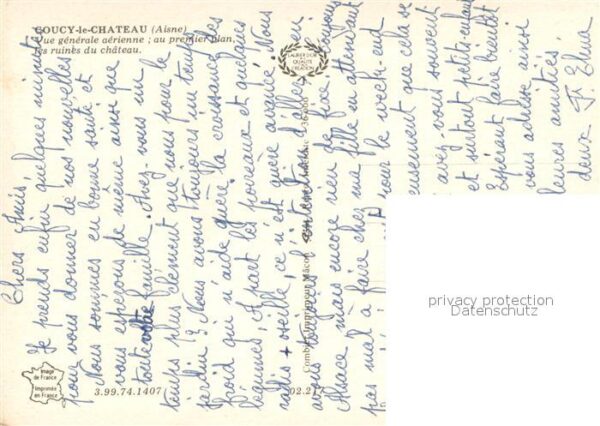 COUCY-le-CHATEAU (Aisne)
Vue générale aérienne ; au premier plan,
les ruines du château.
LAURIER D'OR
QUALITE
CREATION
Combier Imprimeur Mâcon
Image
de France
Imprimée
en France
3.99.74.1407
02.21
privacy protection
Datenschutz
Chers Amis,
Je prends enfin quelques minutes
pour vous donner de nos nouvelles
Nous sommes en bonne santé et
vous espérons de même ainsi que
toute votre famille. Avez-vous un
temps plus clément que nous pour le
jardin ? Nous avons toujours un temps
froid qui n'aide guère la croissance des
légumes, A part les poireaux et quelques
radis + oseille, ce n'est guère avancé. Nous
avons toujours l'
Alsace mais encore rien de fixe
pas mal à faire chez ma fille en attendant
pour le week-end
que cela se
avez-vous souvent
et surtout petits-enfants
Espérant faire bientôt
vous adresse ainsi
leures amitiés
deux